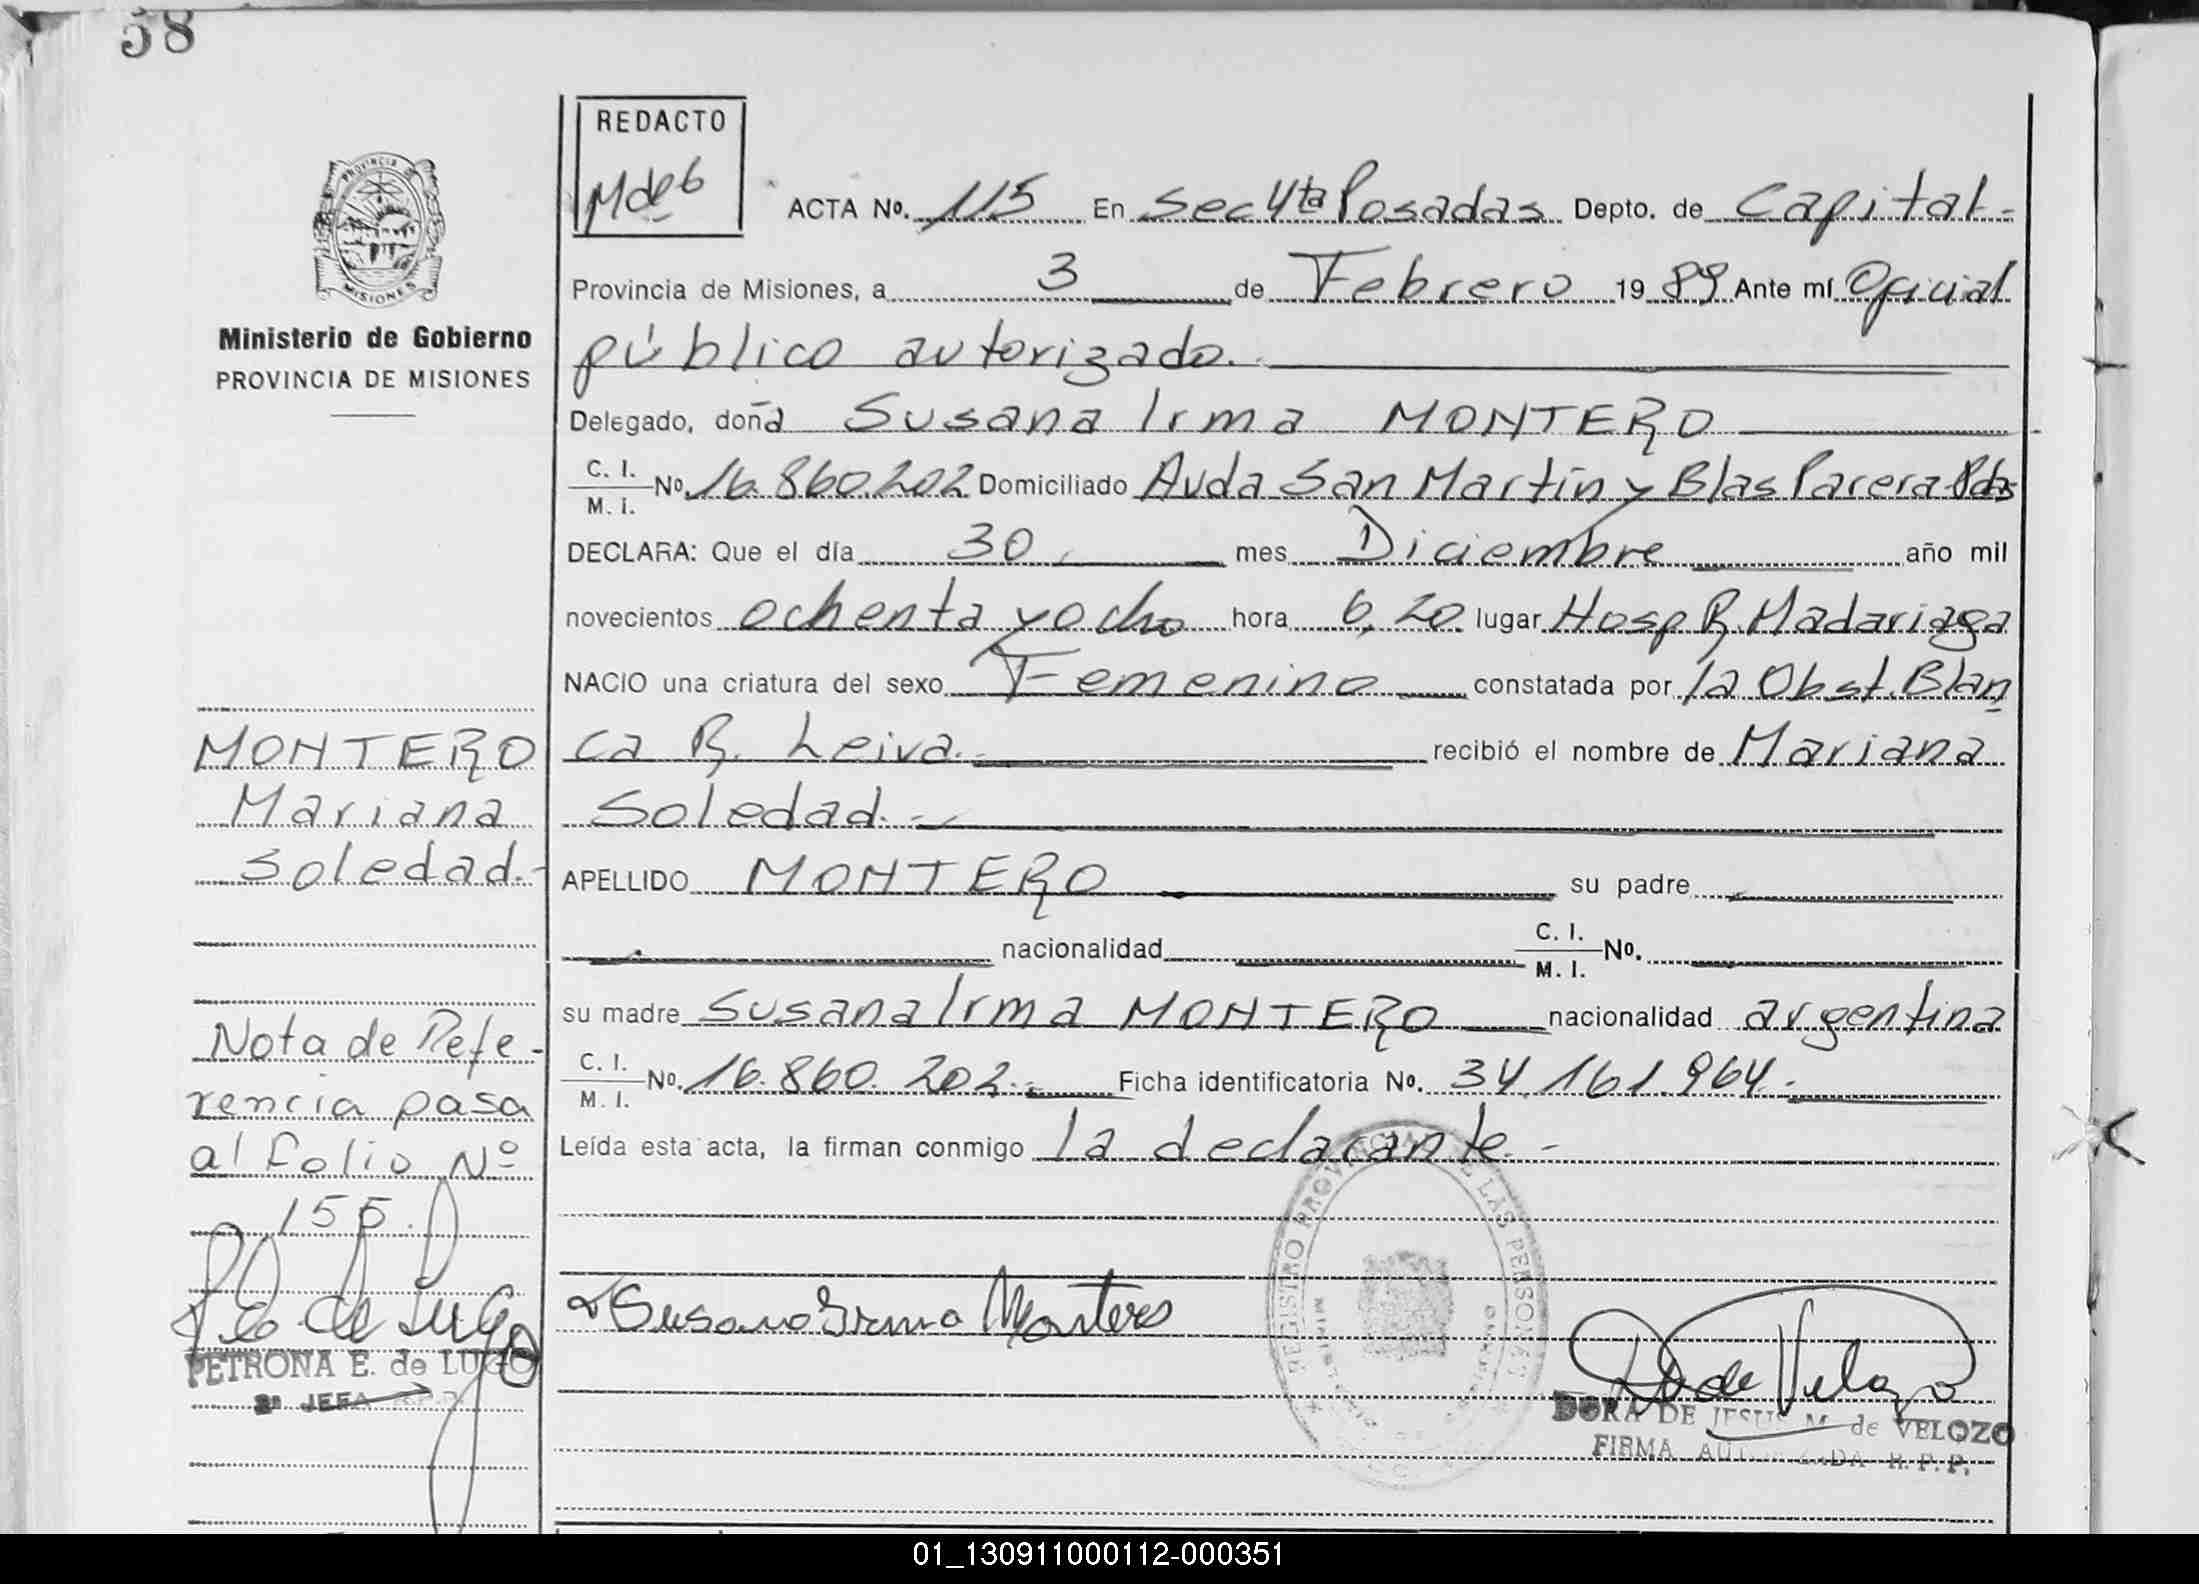 58
REDACTO
ACTA No. 115 En Sec 4ta Posadas Depto. de Capital.-
Provincia de Misiones, a 3 de Febrero 1989 Ante mí Oficial
público autorizado.
Delegado, doña Susana Irma MONTERO
C. I.
M. I. No. 16.860.202 Domiciliado Avda San Martín y Blas Parera Pdas
DECLARA: Que el día 30 mes Diciembre año mil
novecientos ochenta y ocho hora 6,20 lugar Hosp R. Madariaga
NACIO una criatura del sexo Femenino constatada por la Obst. Blan
ca R. Leiva. recibió el nombre de Mariana
Soledad.-
APELLIDO MONTERO su padre
nacionalidad C. I.
M. I. No.
su madre Susana Irma MONTERO nacionalidad argentina
C. I.
M. I. No. 16.860.202.- Ficha identificatoria No. 34.161.964.-
Leída esta acta, la firman conmigo la declarante.-
Susana Irma Montero
REGISTRO PROVINCIAL DE LAS PERSONAS
D. de Velozo
DORA DE JESUS M. de VELOZO
FIRMA AUTORIZADA R.P.P.
PROVINCIA
MISIONES
Ministerio de Gobierno
PROVINCIA DE MISIONES
MONTERO
Mariana
Soledad.-
Nota de Refe-
rencia pasa
al folio Nº
155.
de Lugo
PETRONA E. de LUGO
2ª JEFA
01_130911000112-000351